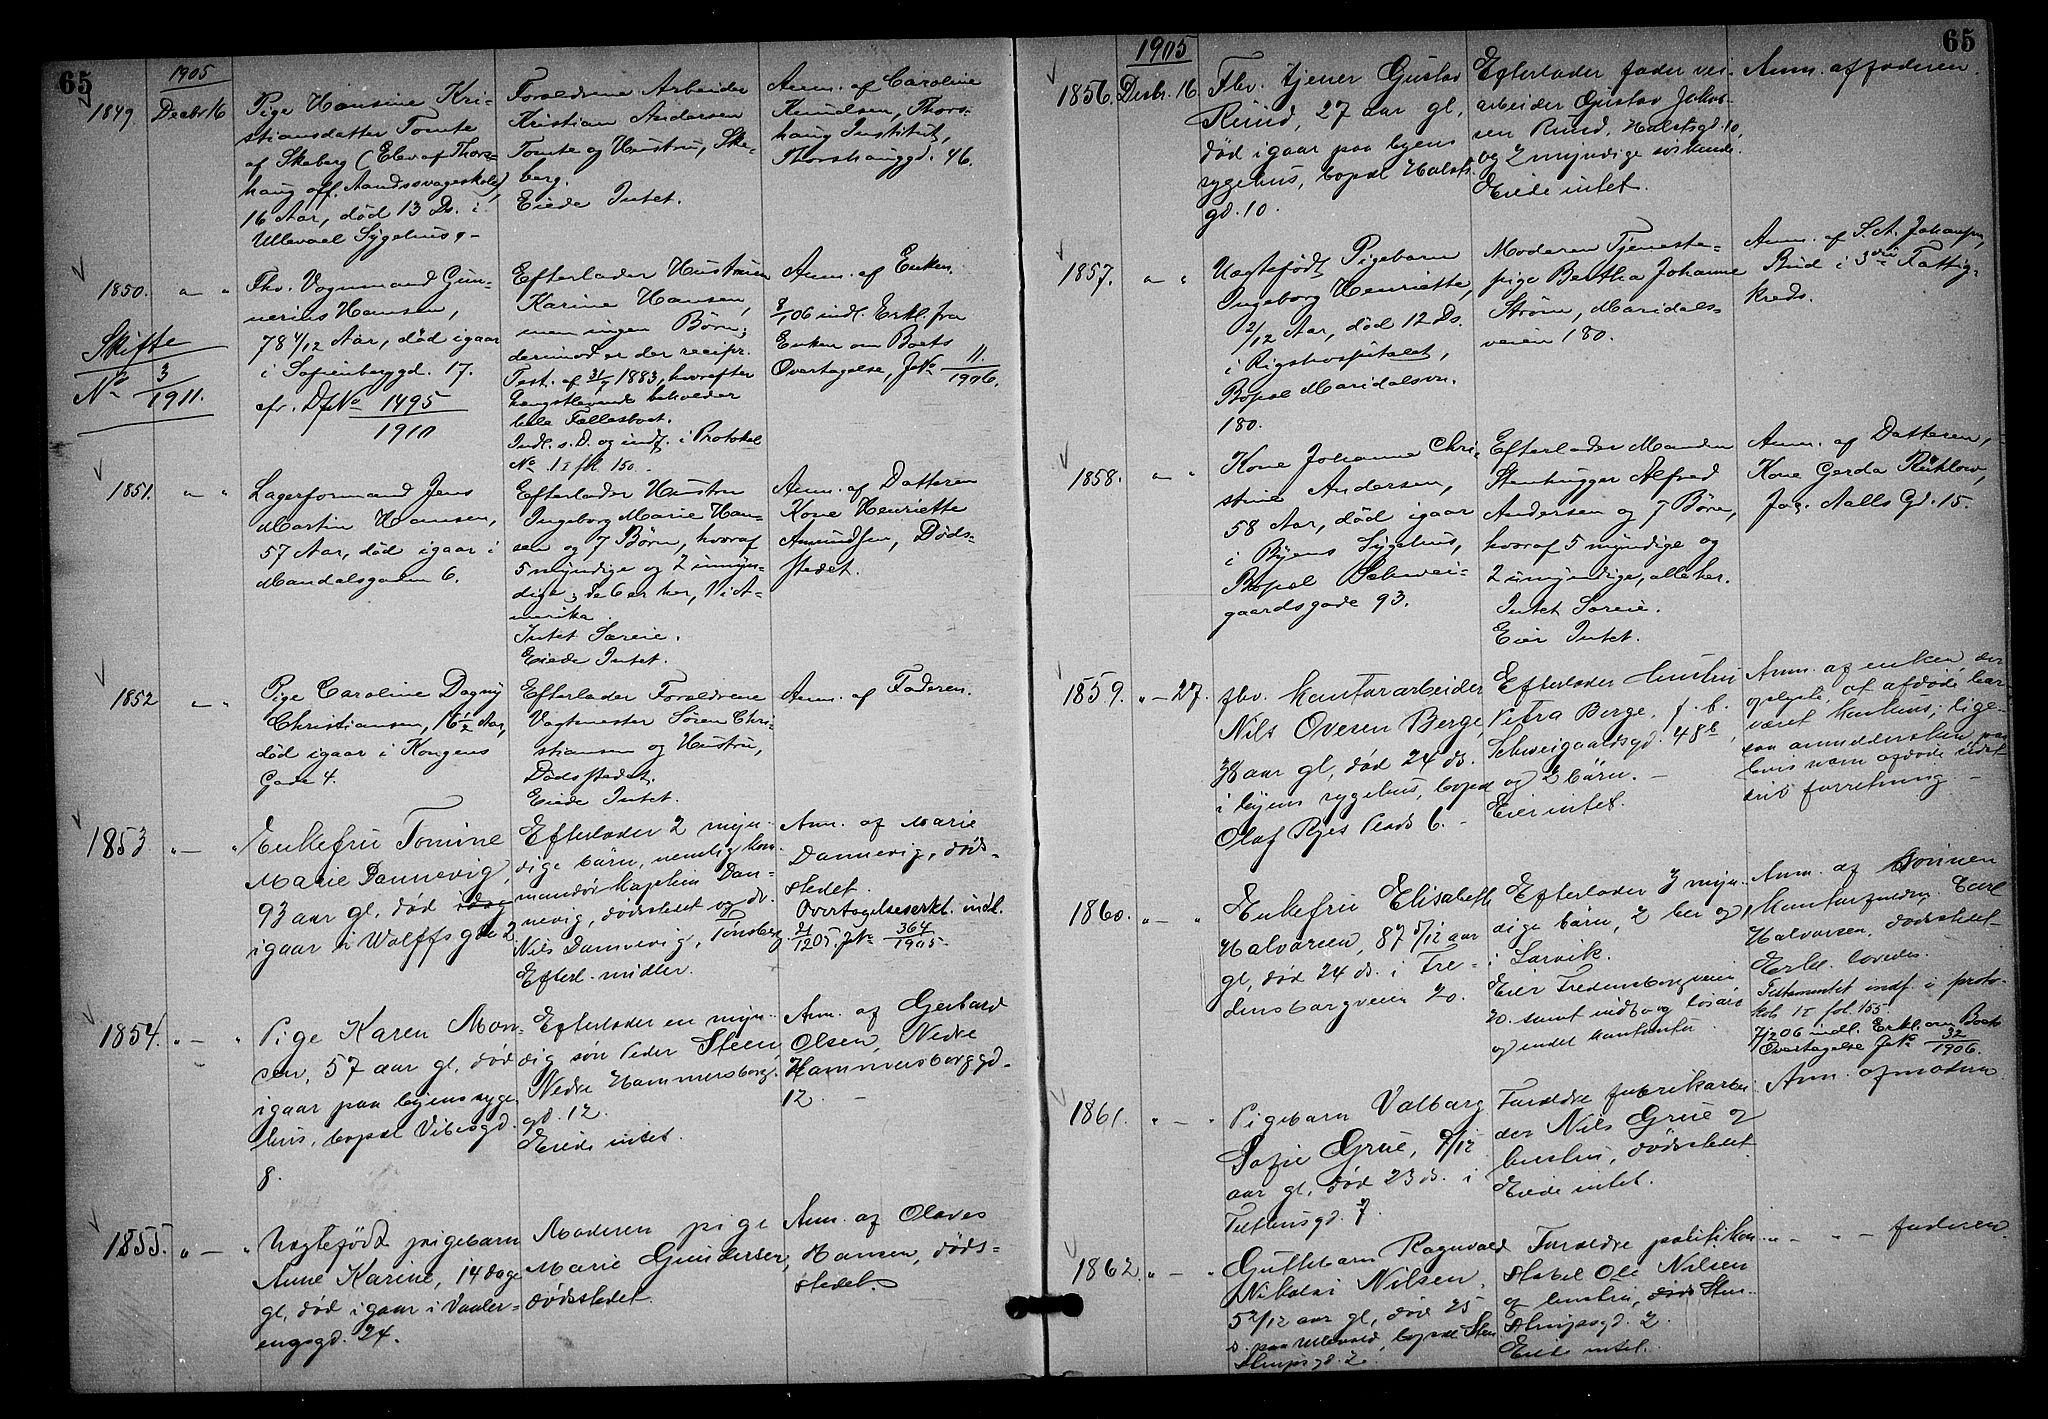 65
1905
1849
Decbr 16
Pige Hansine Kri-
stiansdatter Tomte
af Skeberg (Elev af Thors-
haug off. Aandssvageskole),
16 Aar, død 13 Ds. i
Ullevaal Sygehus.
Forældrene Arbeider
Kristian Andersen
Tomte og Hustru, Ske-
berg.
Eiede Intet.
Anm. af Caroline
Knudsen, Thors-
haug Institut,
Thorshauggd. 46.
1850. " "
Skifte
No 3/1911.
Fhv. Vognmand Gun-
nerius Hansen,
78 4/12 Aar, død igaar
i Sofienberggd. 17.
cfr. Df No 1495/1910
Efterlader Hustruen
Karine Hansen,
men ingen Børn;
derimod er der recipr.
Test. af 31/7 1883, hvorefter
Længstlevende beholder
hele Fællesboet.
Indl. s. D. og indf. i Protokol
No 1 I fol 150.
Anm. af Enken.
8/1 06 indl. Erkl. fra
Enken om Boets
Overtagelse, J No 11/1906.
1851. " "
Lagerformand Jens
Martin Hansen,
57 Aar, død igaar i
Mandalsgaden 6.
Efterlader Hustru
Ingeborg Marie Han-
sen og 7 Børn, hvoraf
5 myndige og 2 umyn-
dige; de 6 er her, 1 i A-
merika.
Intet Særeie.
Eiede Intet.
Anm. af Datteren
Kone Henriette
Amundsen, Døds-
stedet.
1852 " "
Pige Caroline Dagny
Christiansen, 16 1/2 Aar,
død igaar i Kongens
Gade 4.
Efterlader Forældrene
Vagtmester Søren Chri-
stiansen og Hustru,
Dødsstedet.
Eiede Intet.
Anm. af Faderen.
1853 " — "
Enkefru Tomine
Marie Dannevig,
93 aar gl, død idag
igaar i Wolffsgd. 2.
Efterlader 2 myn-
dige børn, nemlig kom-
mandørkaptein Dan-
nevig, dødsstedet og dr.
Nils Dannevig, Tønsberg.
Efterl. midler.
Anm. af Marie
Dannevig, døds-
stedet.
Overtagelseserkl. indl.
21/12 05. J No 364/1905.
1854. " — "
Pige Karen Mon-
sen, 57 aar gl, død
igaar paa byens syge-
hus, bopæl Vibesgd.
8.
Efterlader en myn-
dig søn Peder Steen,
Nedre Hammersborg-
gd. 12.
Eiede intet.
Anm. af Gerhard
Olsen, Nedre
Hammersborggd.
12. —
1855. " — "
Uægtefødt pigebarn
Anne Karine, 14 dage
gl, død igaar i Vaaler-
engsgd. 24.
Moderen pige
Marie Gundersen,
dødsstedet.
Anm. af Olaves
Hansen, døds-
stedet.
65
1905
1856. Decbr. 16
Fhv. tjener Gustav
Ruud, 27 aar gl,
død igaar paa byens
sygehus, bopæl Halsts-
gd. 10.
Efterlader fader vei-
arbeider Gustav Jakob-
sen Ruud, Halstsgd. 10,
og 2 myndige søskende.
Eiede intet.
Anm. af faderen.
1857. " "
Uægtefødt Pigebarn
Ingeborg Henriette,
2/12 Aar, død 12 Ds.
i Rigshospitalet,
Bopæl Maridalsvn.
180.
Moderen Tjeneste-
pige Bertha Johanne
Strøm, Maridals-
veien 180.
Anm. af S. A. Johansen,
Bud i 3die Fattig-
kreds.
1858. " "
Kone Johanne Chri-
stine Andersen,
58 Aar, død igaar
i Byens Sygehus,
Bopæl Schwei-
gaardsgade 93.
Efterlader Manden
Stenhugger Alfred
Andersen og 7 Børn,
hvoraf 5 myndige og
2 umyndige, alle her.
Intet Særeie.
Eier Intet.
Anm. af Datteren,
Kone Gerda Rüthlow,
Jac. Aalls Gd. 15.
1859. " — 27.
fhv. kontorarbeider
Nils Oversen Berge,
38 aar gl, død 24 ds.
i byens sygehus, bopæl
Olaf Ryes Plads 6. —
Efterlader hustru
Petra Berge, f. b.
Schweigaardsgd. 48 b,
og 2 børn. —
Eier intet.
Anm. af enken, der
oplyste, at afdøde har
været konkurs; lige-
saa anmeldersken paa
hvis navn afdøde udøv-
drev forretning —
1860. " — "
Enkefru Elisabeth
Halvorsen, 87 5/12 aar
gl, død 24 ds. i Fre-
densborgveien 20.
Efterlader 3 myn-
dige børn, 2 her og 1
i Larvik.
Eier Fredensborgveien
20. samt indbo og løsøre
og endel kontanter.
Anm. af sønnen
kontorfuldm. Carl
Halvorsen, dødsstedet
Erkl. lovedes.
Testamentet indf. i proto-
kol I fol. 155.
7/2 06 indl. Erkl. om Boets
Overtagelse J No 32/1906.
1861. " — "
Pigebarn Valborg
Sofie Grue, 9/12
aar gl, død 23 ds. i
Tueensgd. 7.
Forældre fabrikarbei-
der Nils Grue og
hustru, dødsstedet.
Eiede intet.
Anm. af moderen
1862. " — "
Guttebarn Ragnvald
Nikolai Nilsen,
5 2/12 aar gl, død 25
ds. paa Ullevaal, bopæl Sten-
strupsgd. 2.
Forældre politikon-
stabel Ole Nilsen
og hustru, dødsst. Sten-
strupsgd. 2.
Eiede intet.
" — " — faderen.